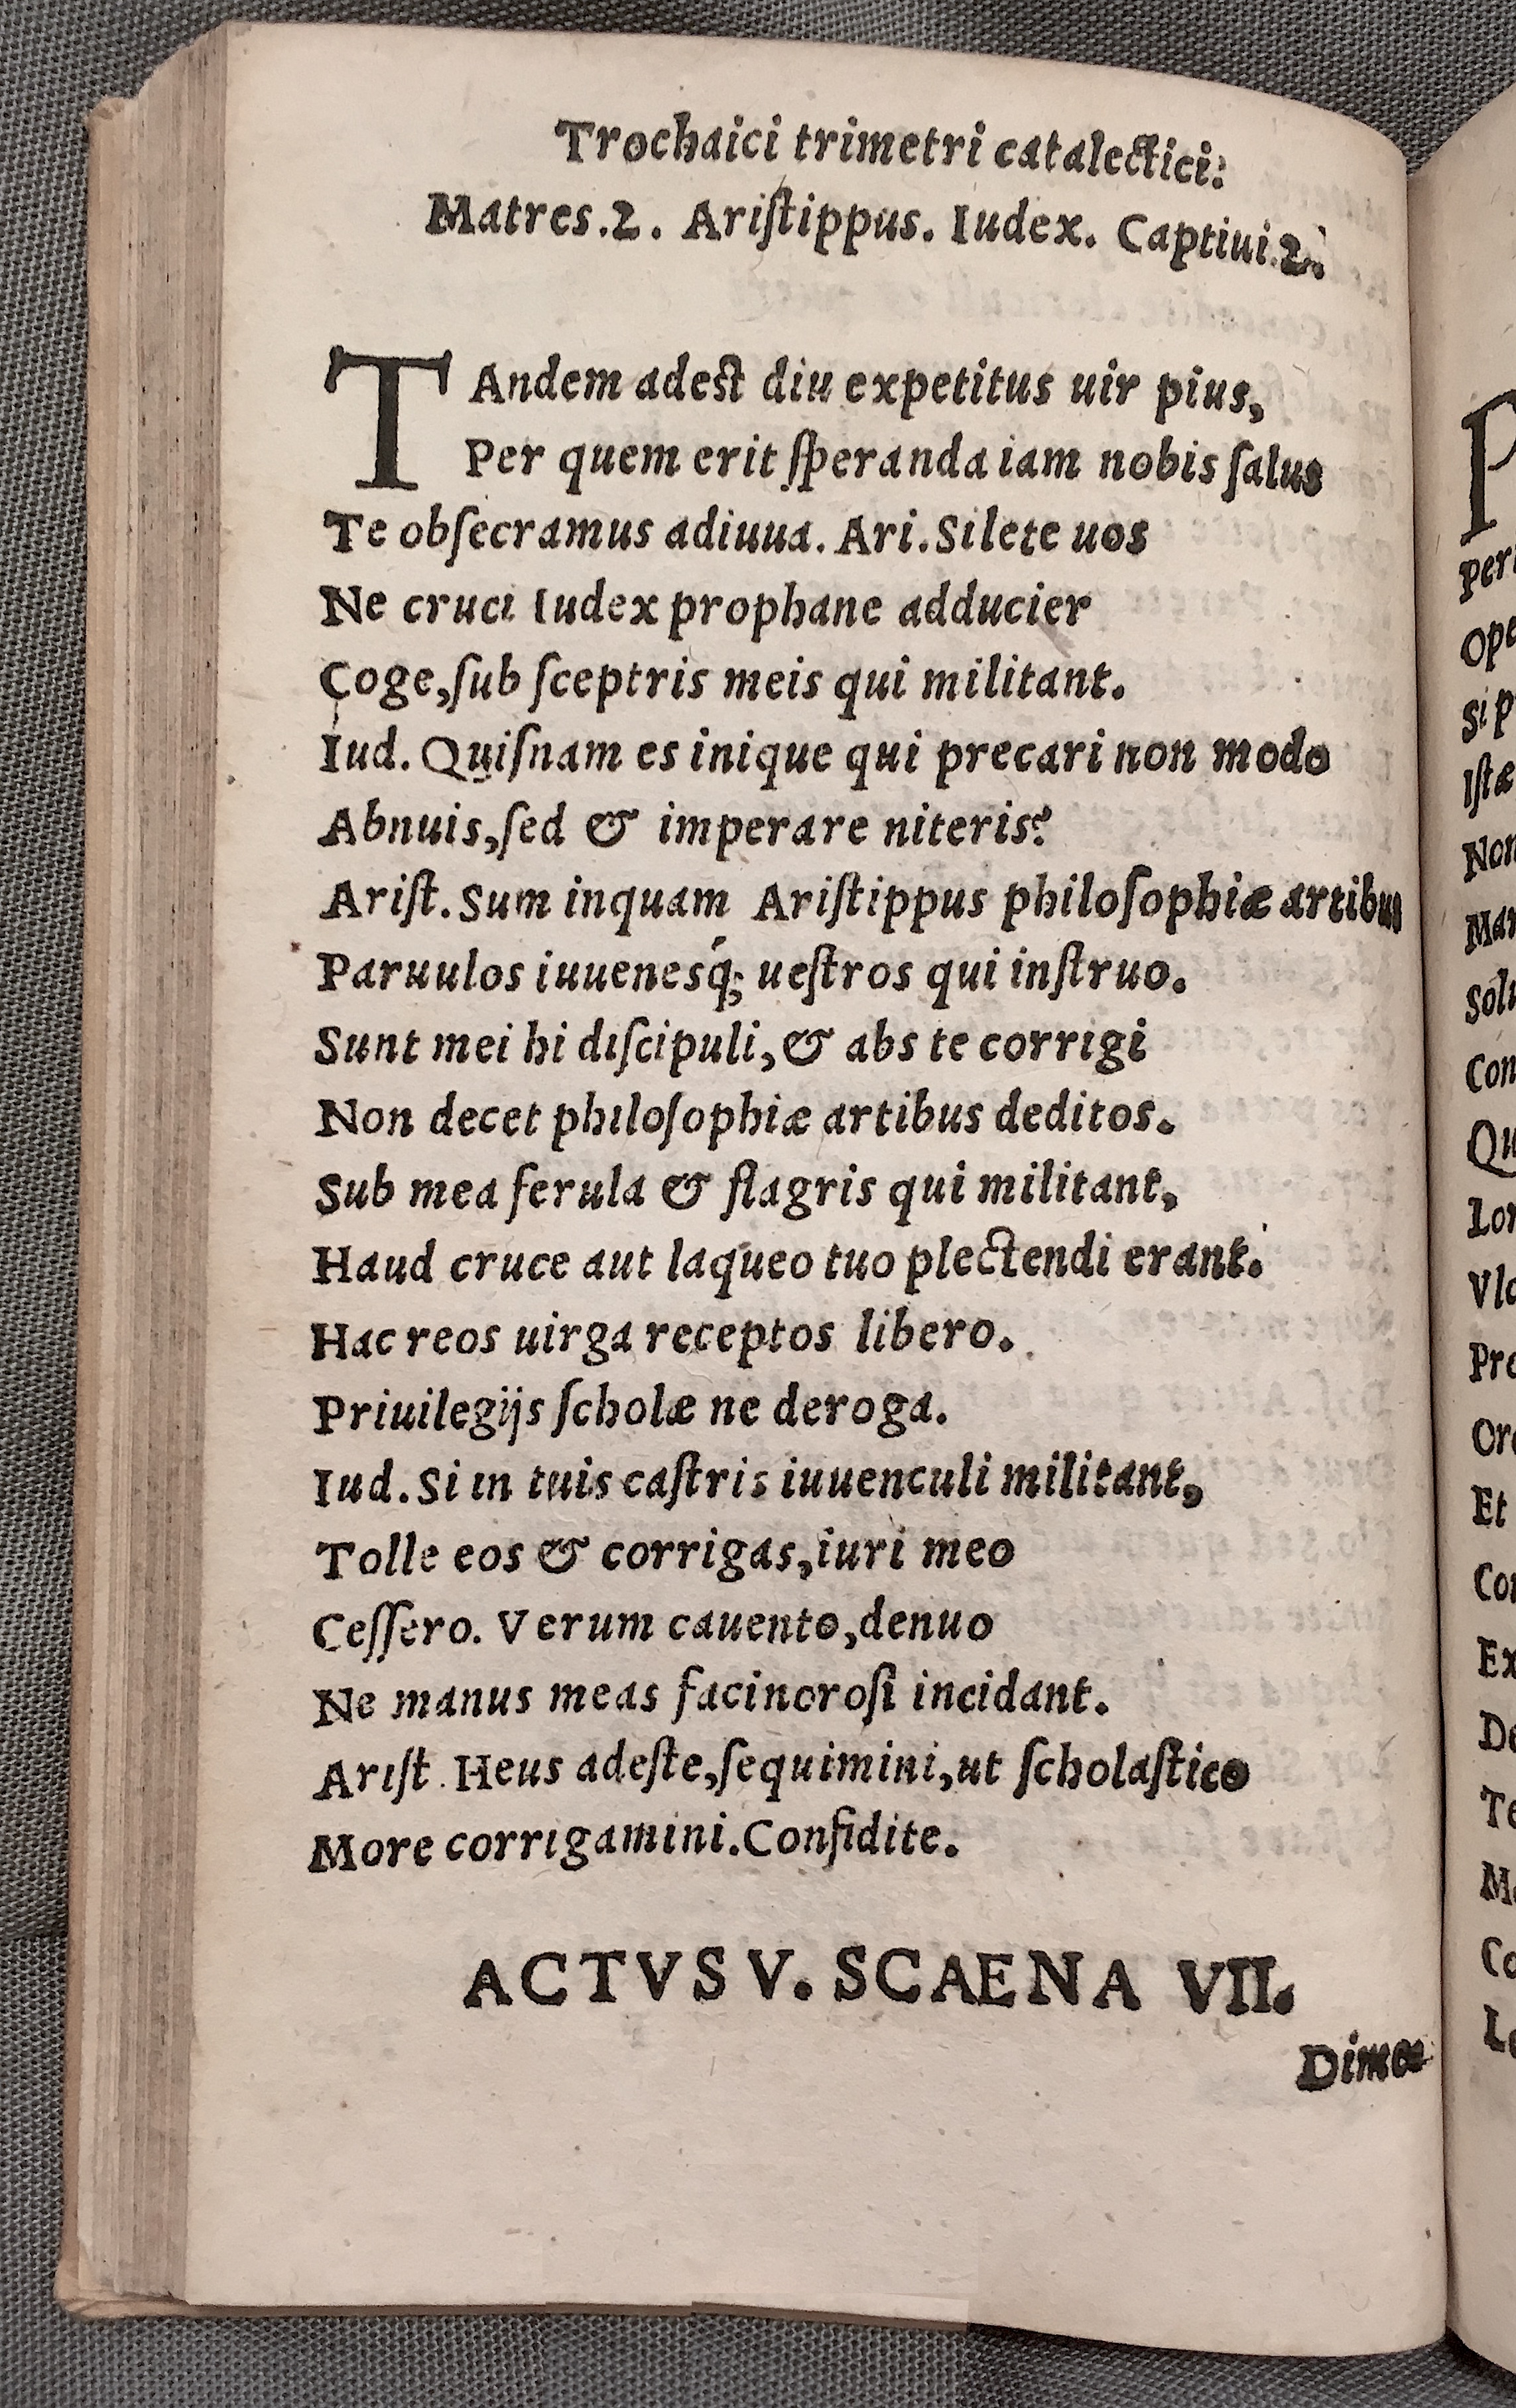 Trochaici trimetri catalectici:
Matres.2. Ariſtippus. Iudex. Captiui.2.
TAndem adest diu expetitus uir pius,
Per quem erit ſperanda iam nobis ſalus
Te obſecramus adiuua. Ari. Silete uos
Ne cruci Iudex prophane adducier
Coge, ſub ſceptris meis qui militant.
Iud. Quiſnam es inique qui precari non modo
Abnuis, ſed & imperare niteris?
Ariſt. Sum inquam Ariſtippus philoſophiæ artibus
Paruulos iuuenesq́; ueſtros qui inſtruo.
Sunt mei hi diſcipuli, & abs te corrigi
Non decet philoſophiæ artibus deditos.
Sub mea ferula & flagris qui militant,
Haud cruce aut laqueo tuo plectendi erant.
Hac reos uirga receptos libero.
Priuilegijs ſcholæ ne deroga.
Iud. Si in tuis caſtris iuuenculi militant,
Tolle eos & corrigas, iuri meo
Ceſſero. Verum cauento, denuo
Ne manus meas facinoroſi incidant.
Ariſt. Heus adeſte, ſequimini, ut ſcholaſtico
More corrigamini. Confidite.
ACTVS V. SCAENA VII.
P
Ope
Si p
Iſtæ
Et